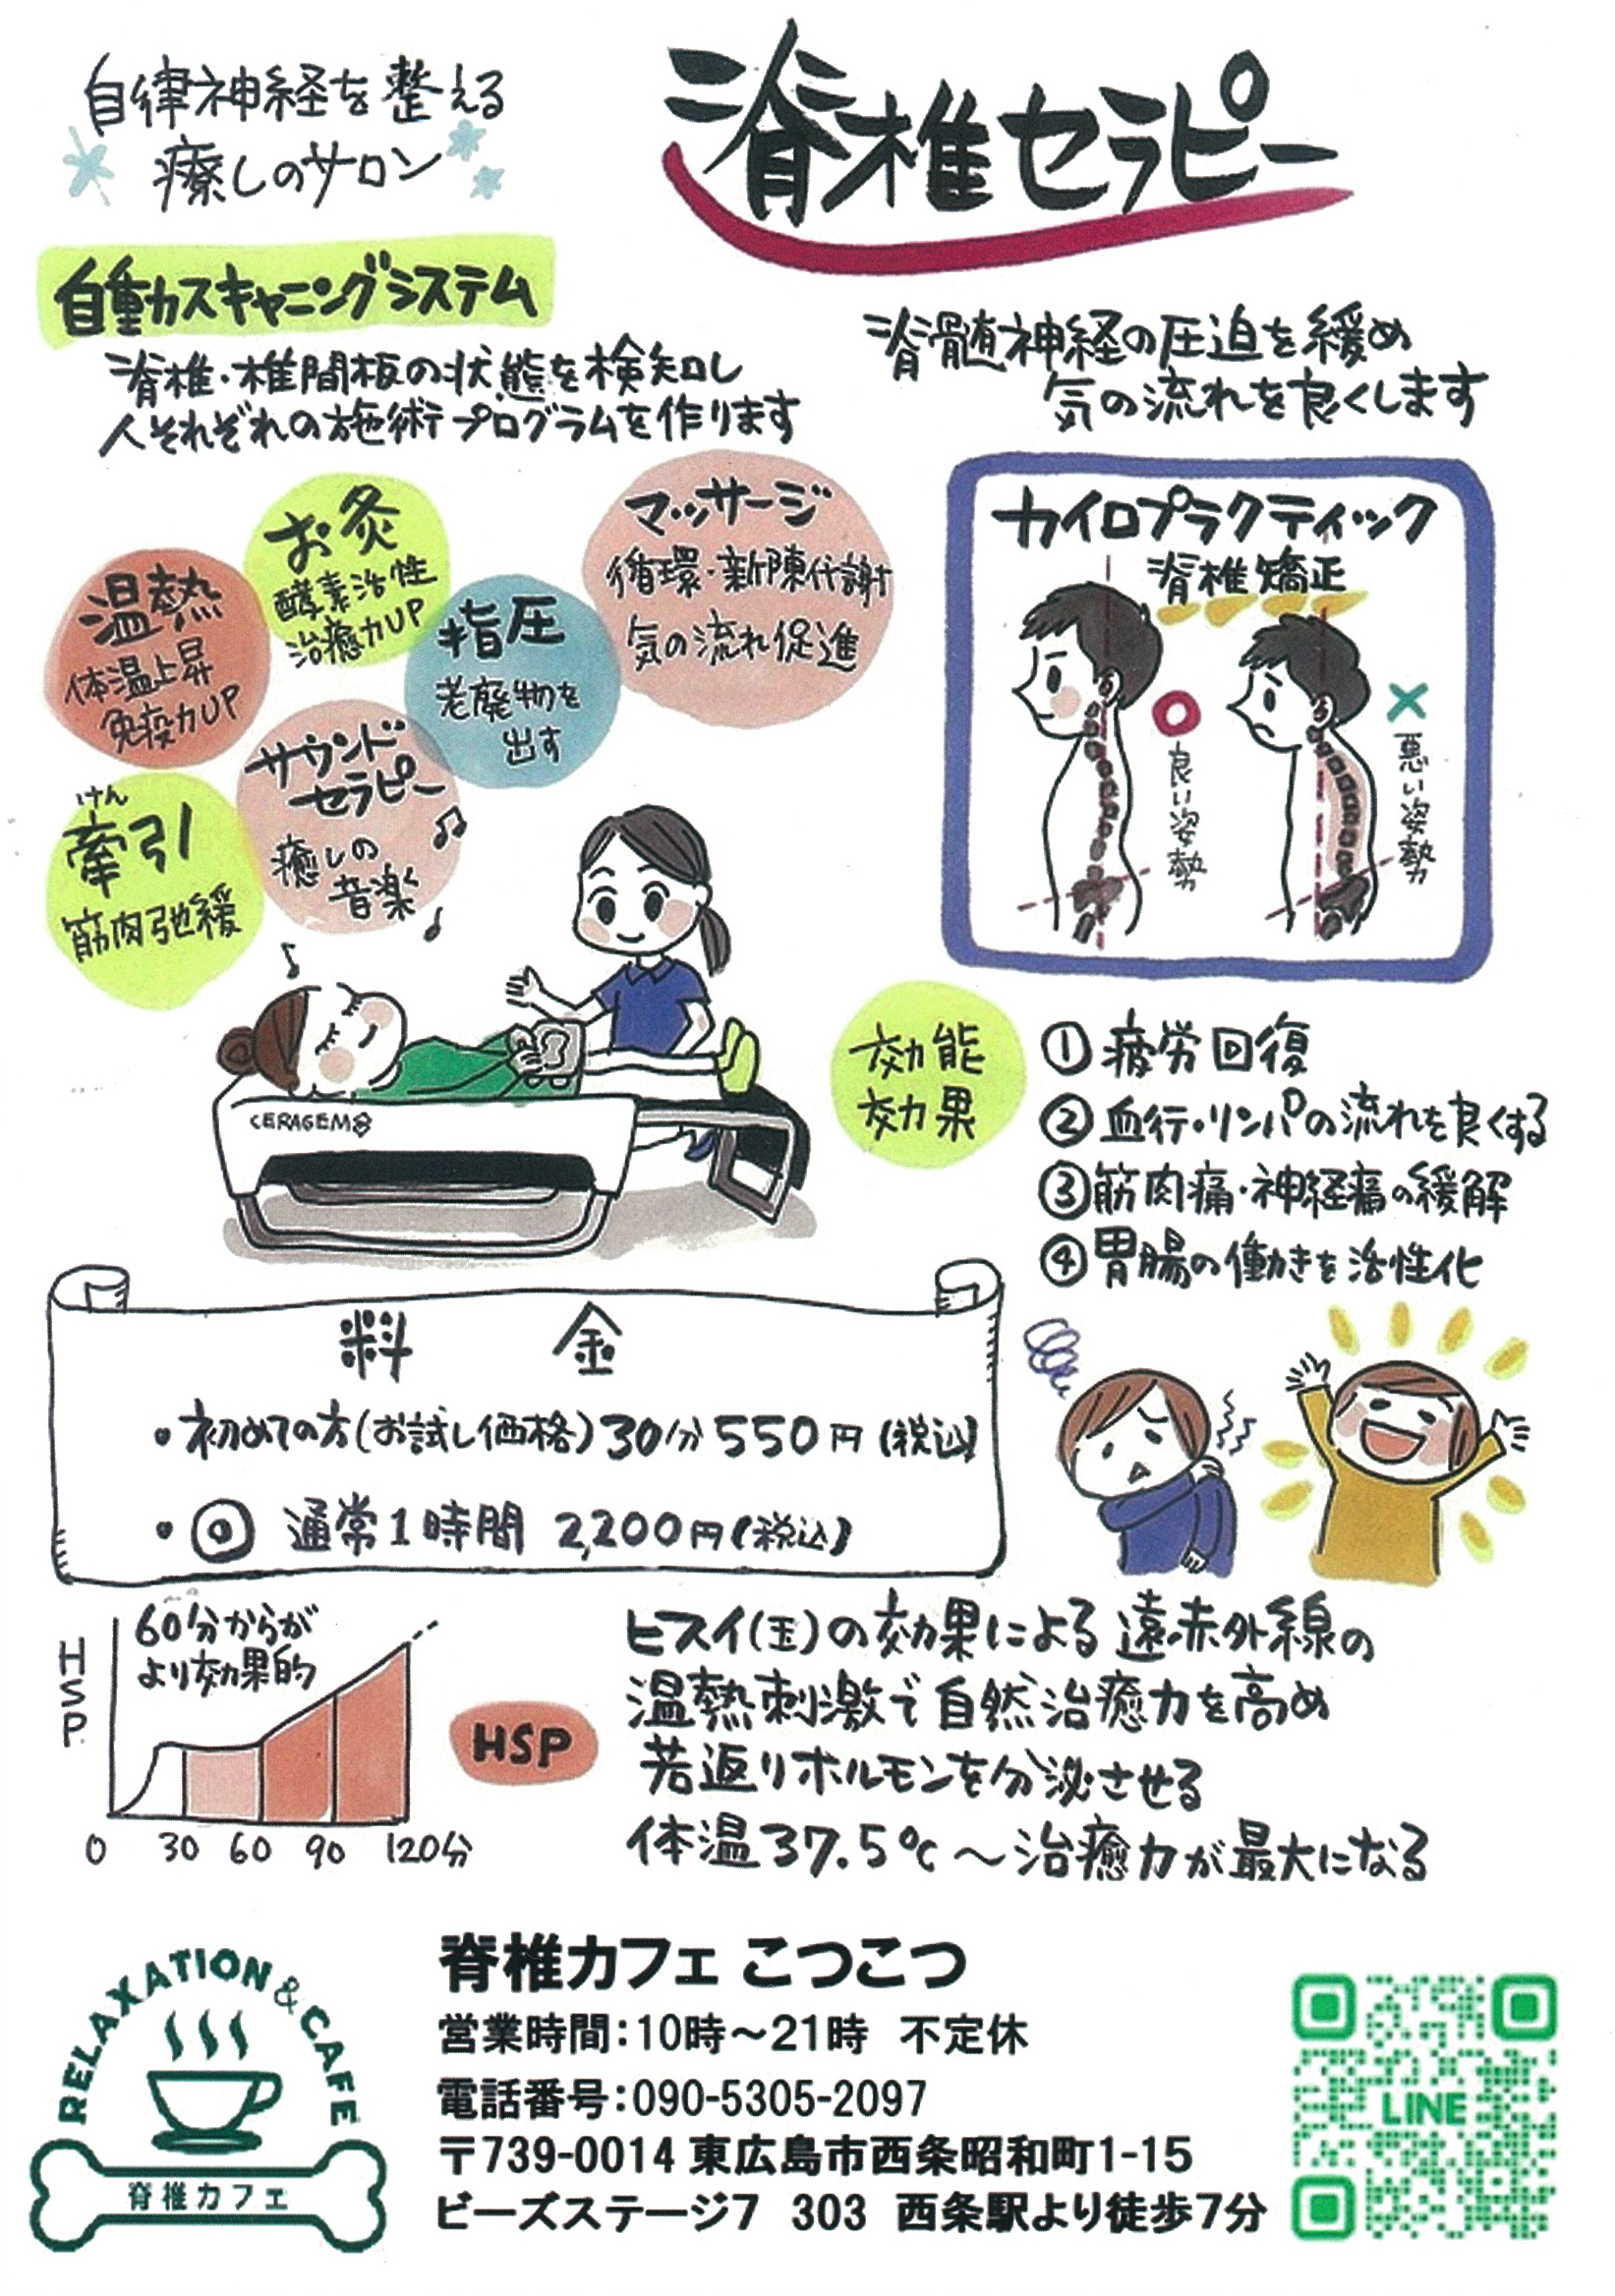 自律神経を整える
療しのサロン
脊椎セラピー
自動カスキャニングシステム
脊椎・椎間板の状態を検知し
人それぞれの施術プログラムを作ります
脊髄神経の圧迫を緩め
気の流れを良くします
温熱
体温上昇
免疫力UP
お灸
酵素活性
治癒力UP
指圧
老廃物を
出す
マッサージ
循環・新陳代謝
気の流れ促進
けん
牽引
筋肉弛緩
サウンド
セラピー
癒しの
音楽
カイロプラクティック
脊椎矯正
良い姿勢
悪い姿勢
CERAGEM
効能
効果
①疲労回復
②血行・リンパの流れを良くする
③筋肉痛・神経痛の緩解
④胃腸の働きを活性化
料金
・初めての方(お試し価格)30分550円(税込)
・◎ 通常1時間 2,200円(税込)
60分からが
より効果的
HSP
0 30 60 90 120分
HSP
ヒスイ(玉)の効果による遠赤外線の
温熱刺激で自然治癒力を高め
若返りホルモンを分泌させる
体温37.5℃〜治癒力が最大になる
RELAXATION & CAFE
脊椎カフェ
脊椎カフェ こつこつ
営業時間：10時～21時　不定休
電話番号：090-5305-2097
〒739-0014 東広島市西条昭和町1-15
ビーズステージ7　303　西条駅より徒歩7分
LINE